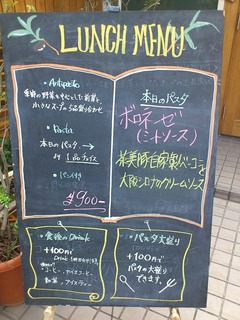 LUNCH MENU
・Antipasto
季節の野菜を中心とした前菜と
小さなスープの5品盛り合わせ
・Pasta
本日のパスタ →
より1品チョイス
・パン付き
¥900-
本日のパスタ
ボロネーゼ
(ミートソース)
自家製ベーコンと
クリームソース
・食後のDrink
+100円
Drink
コーヒー、アイスコーヒー
紅茶、アイスティー
・パスタ大盛り
+100円で
パスタの大盛り
できます。